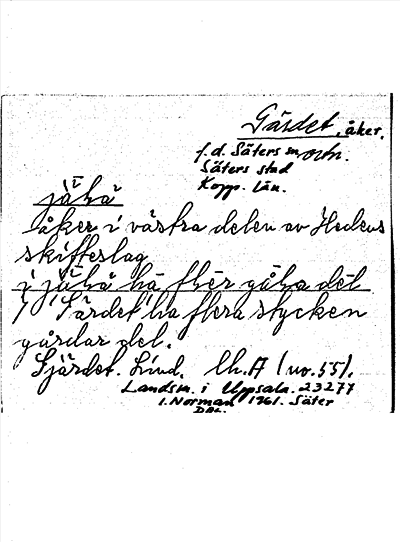 Gärdet, åker.
f.d. Säters sn
Säters stad
Kopp. län.
åker i västra delen av Hedens
skifteslag
I Gärdet ha flera stycken
gårdar del.
Lind. lh. A (no. 55).
Landsm. i Uppsala. 23277
I. Norman 1961. Säter
DAL.